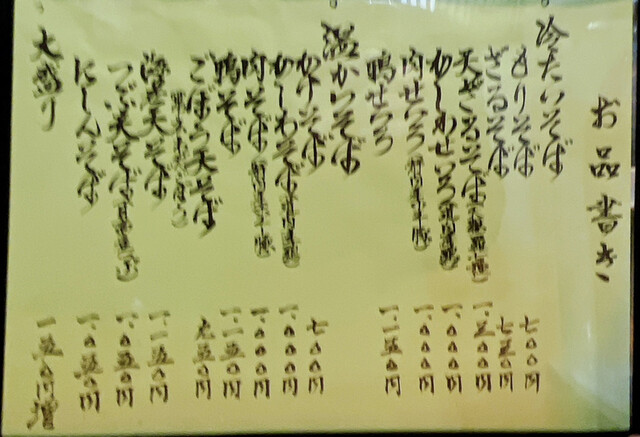 お品書き
冷たいそば
もりそば 七〇〇円
ざるそば 七五〇円
天ざるそば 一、三〇〇円
かしわせいろ 一、〇〇〇円
肉せいろ 一、〇〇〇円
鴨せいろ 一、一五〇円
温かいそば
かけそば 七〇〇円
かしわそば 一、〇〇〇円
肉そば 一、〇〇〇円
鴨そば 一、一五〇円
ごぼう天そば 九五〇円
海老天そば 一、一五〇円
つぶ天そば 一、〇五〇円
にしんそば 一、〇五〇円
大盛り 一五〇円増